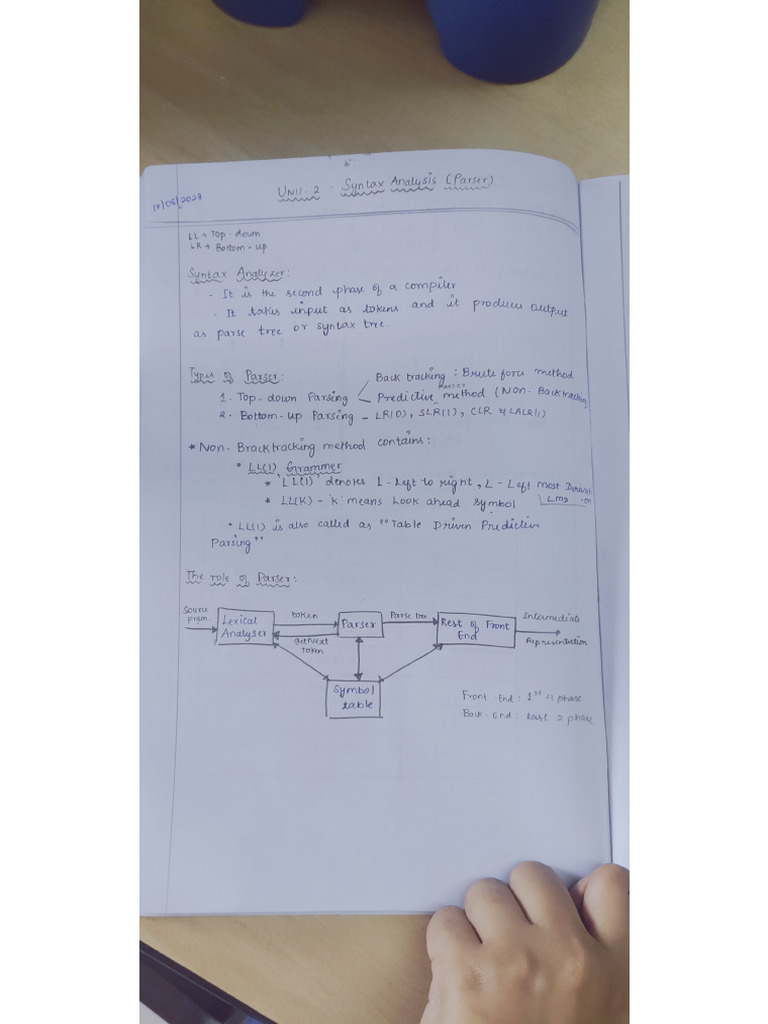 UNIT-2 : Syntax Analysis (Parser)
17/08/2023
LL → Top-down
LR → Bottom-up
Syntax Analyzer:
- It is the second phase of a compiler
- It takes input as tokens and it produces output
as parse tree or syntax tree.
Types of Parser:
Back tracking : Brute force method
1. Top-down Parsing
Predictive Parser method (Non-Backtracking
2. Bottom-up Parsing - LR(0), SLR(1), CLR & LALR(1)
* Non-Bracktracking method contains:
• LL(1) Grammer
* 'LL(1)' denotes L-Left to right, L-Left most Derivati-on
LMD
* LL(K) - 'K' means Look ahead symbol
• LL(1) is also called as "Table Driven Predictive
Parsing"
The role of Parser:
Source prgm.
Lexical Analyser
token
getNext Token
Parser
Parse tree
Rest of Front End
Intermediate
Representation
Symbol table
Front-End : 1st 4 phase
Back-End : last 2 phase